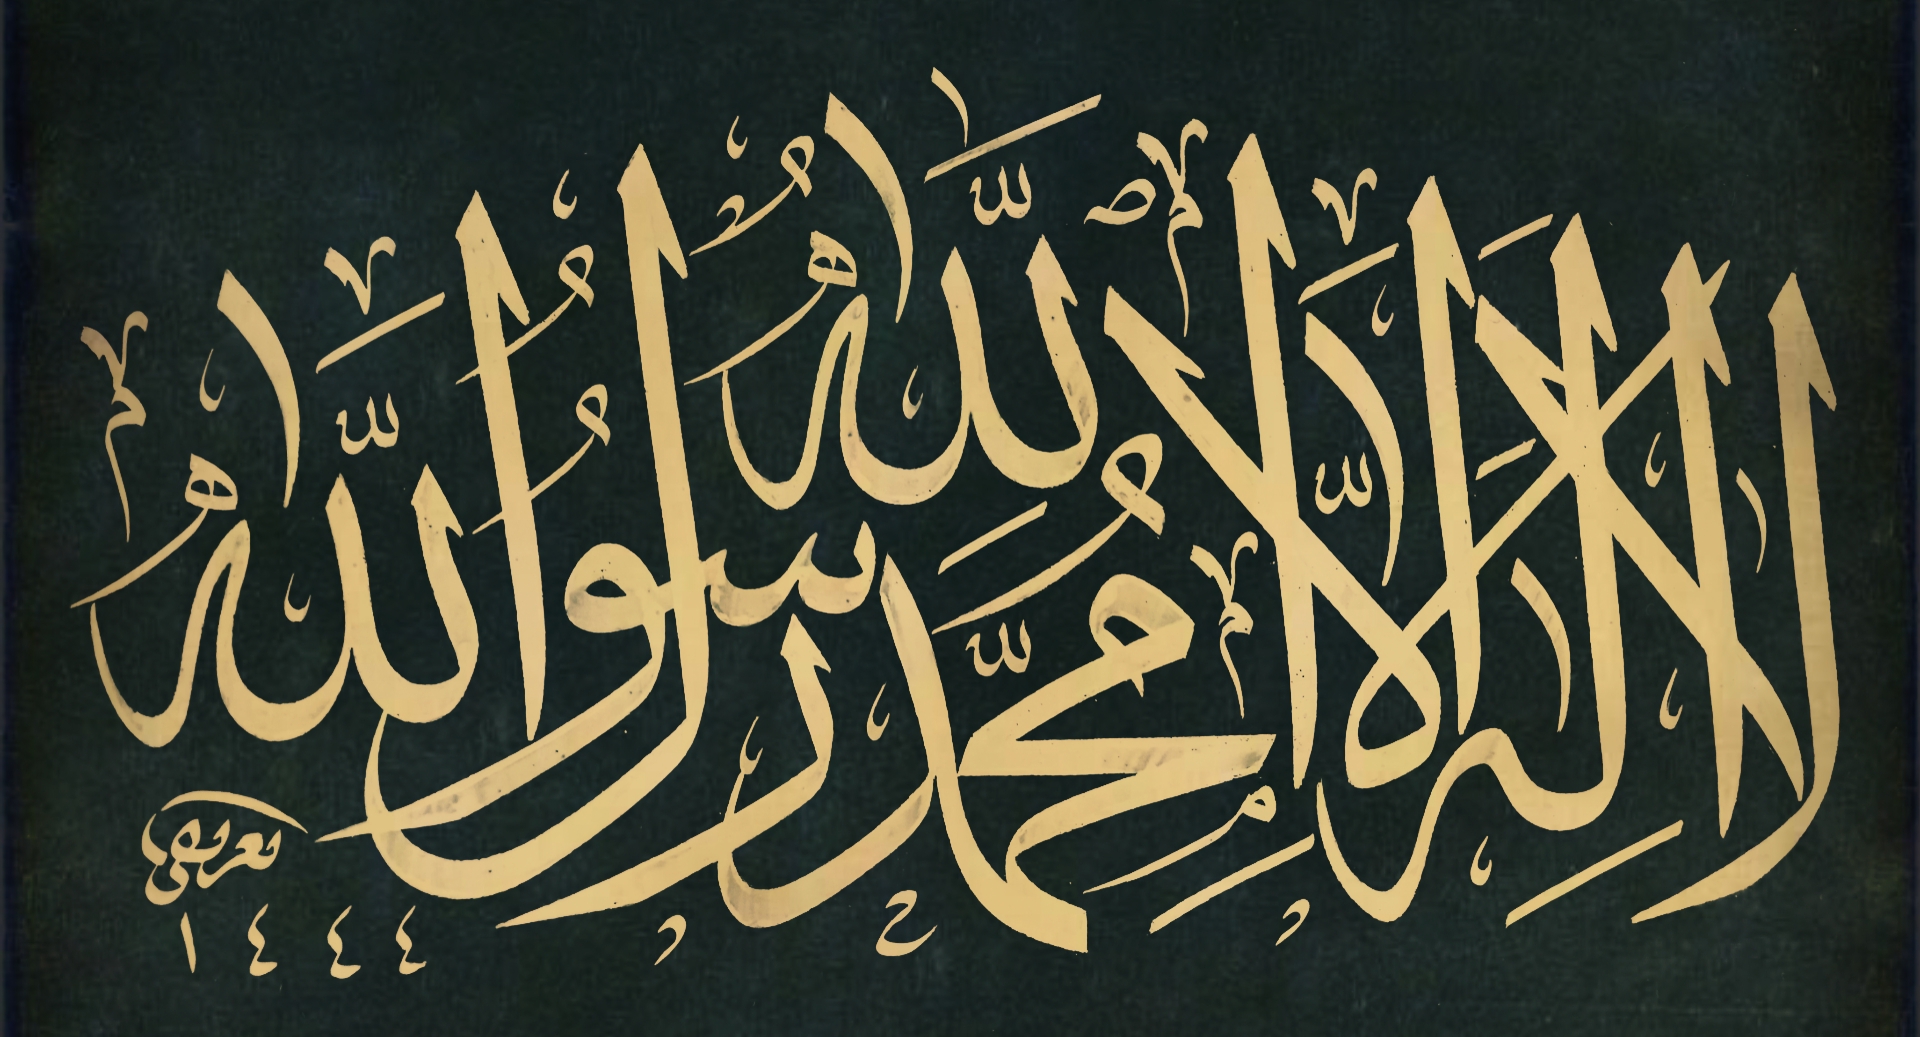 لا إله إلا الله محمد رسول الله
١٤٤٤